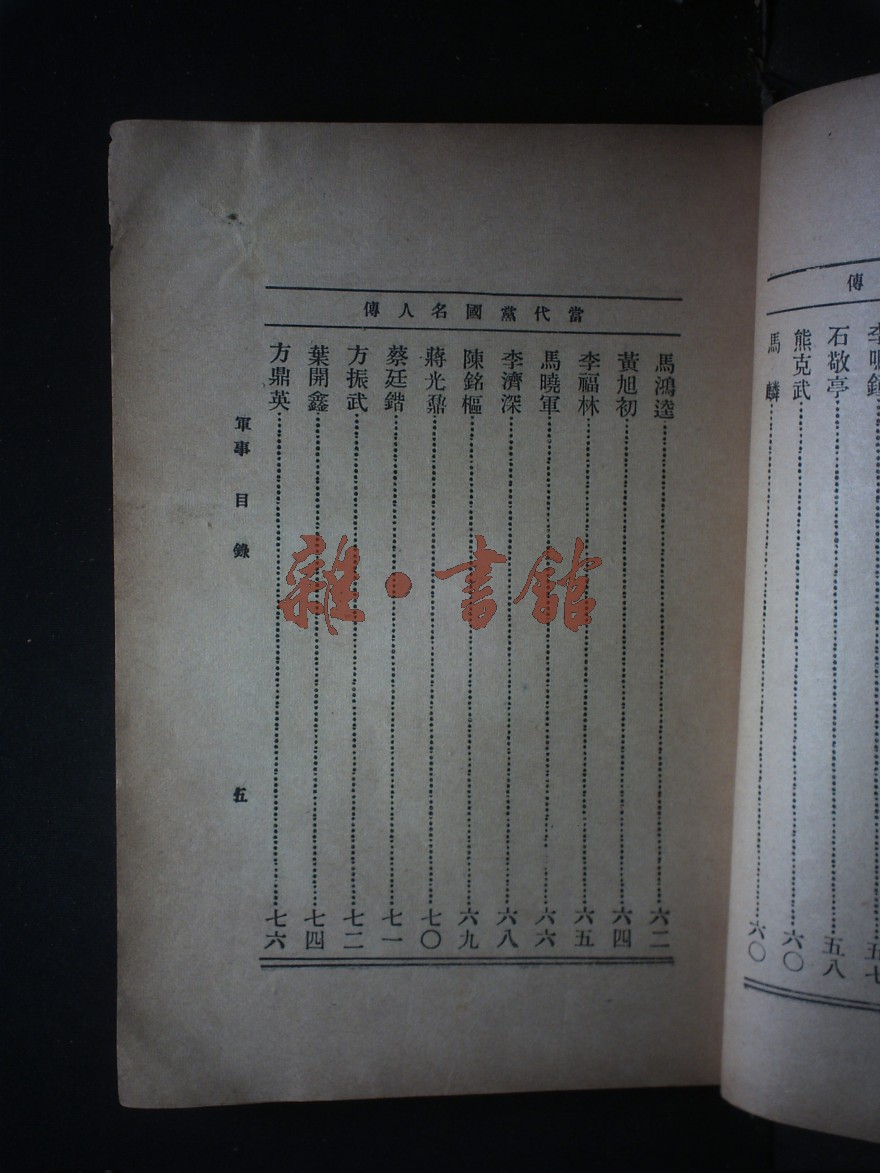 傳
李鳴鐘
五七
石敬亭
五八
熊克武
六〇
馬麟
六〇
當代黨國名人傳
馬鴻逵
六二
黃旭初
六四
李福林
六五
馬曉軍
六六
李濟深
六八
陳銘樞
六九
蔣光鼐
七〇
蔡廷鍇
七一
方振武
七二
葉開鑫
七四
方鼎英
七六
軍事目錄
五
雜·書館